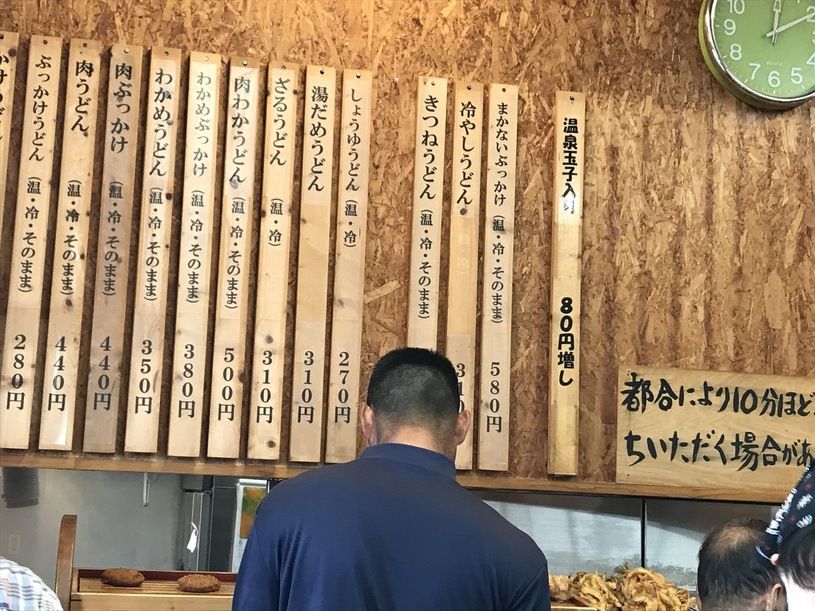 かけうどん
ぶっかけうどん（温・冷・そのまま） 280円
肉うどん（温・冷・そのまま） 440円
肉ぶっかけ（温・冷・そのまま） 440円
わかめうどん（温・冷・そのまま） 350円
わかめぶっかけ（温・冷・そのまま） 380円
肉わかうどん（温・冷・そのまま） 500円
ざるうどん（温・冷） 310円
湯だめうどん 310円
しょうゆうどん（温・冷） 270円
きつねうどん（温・冷・そのまま）
冷やしうどん
まかないぶっかけ（温・冷・そのまま） 580円
温泉玉子入り 80円増し
都合により10分ほど
ちいただく場合があ
10 12 2
9 3
8 4
7 6 5